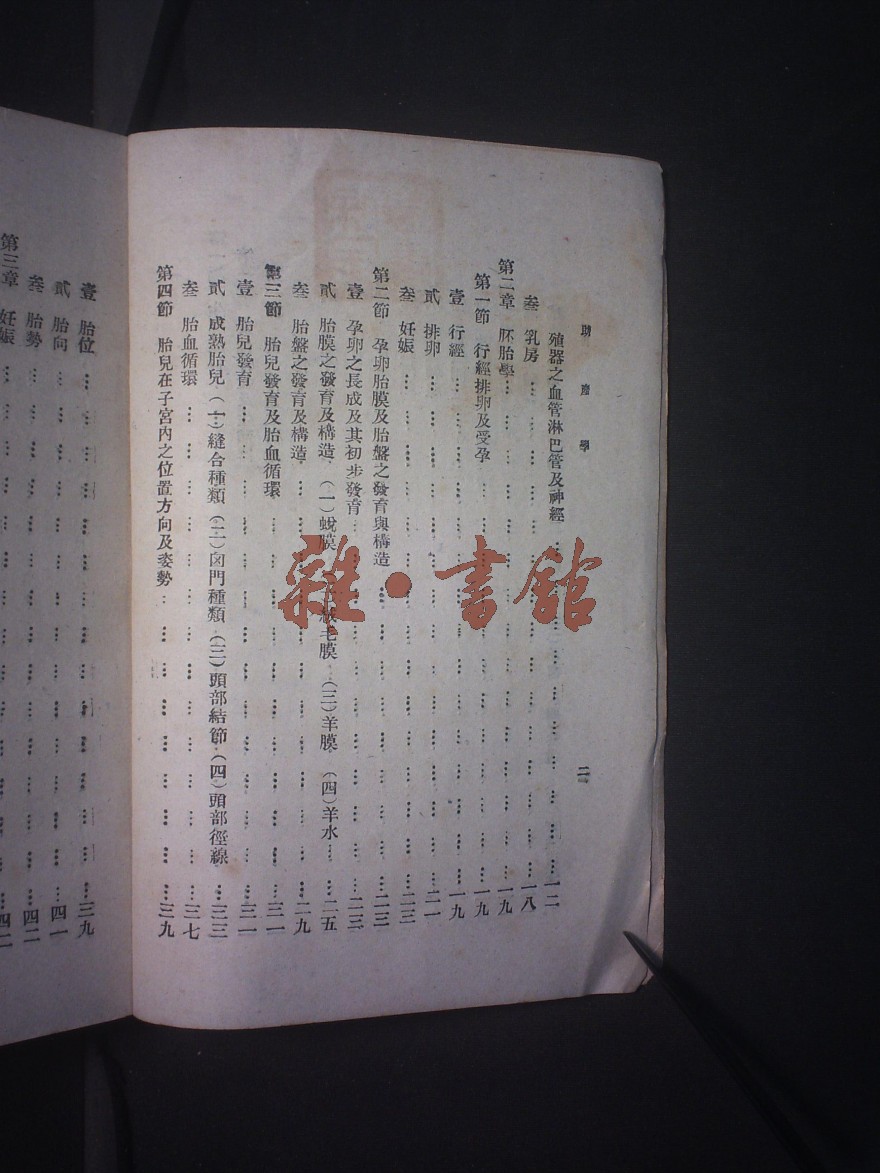 助產學
二
殖器之血管淋巴管及神經……一二
叁 乳房……一八
第二章 胚胎學……一九
第一節 行經排卵及受孕……一九
壹 行經……一九
貳 排卵……二一
叁 妊娠……二三
第二節 孕卵胎膜及胎盤之發育與構造……二三
壹 孕卵之長成及其初步發育……二三
貳 胎膜之發育及構造 (一)蛻膜 毛膜 (三)羊膜 (四)羊水……二五
叁 胎盤之發育及構造……二九
第三節 胎兒發育及胎血循環……三一
壹 胎兒發育……三一
貳 成熟胎兒 (一)縫合種類 (二)囟門種類 (三)頭部結節 (四)頭部徑線……三三
叁 胎血循環……三七
第四節 胎兒在子宮內之位置方向及姿勢……三九
壹 胎位……三九
貳 胎向……四一
叁 胎勢……四二
第三章 妊娠……四二
雜·書館